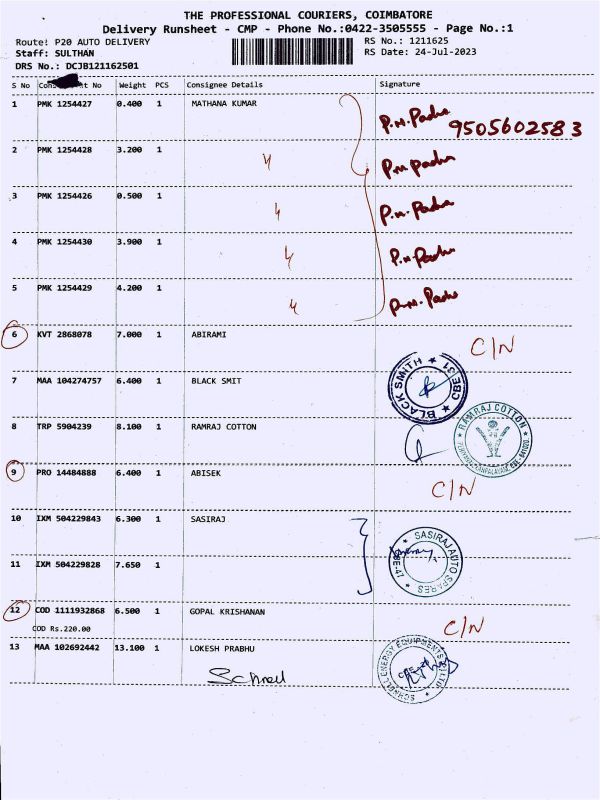 THE PROFESSIONAL COURIERS, COIMBATORE
Delivery Runsheet - CMP - Phone No.:0422-3505555 - Page No.:1
Route: P20 AUTO DELIVERY RS No.: 1211625
Staff: SULTHAN RS Date: 24-Jul-2023
DRS No.: DCJB121162501
S No Con t No Weight PCS Consignee Details Signature
1 PMK 1254427 0.400 1 MATHANA KUMAR P.N.Padhu 9505602583
2 PMK 1254428 3.200 1 4 P.N Padhu
3 PMK 1254426 0.500 1 4 P.N.Padhu
4 PMK 1254430 3.900 1 4 P.N.Padhu
5 PMK 1254429 4.200 1 4 P.N.Padhu
6 KVT 2868078 7.000 1 ABIRAMI C/N
7 MAA 104274757 6.400 1 BLACK SMIT ★ BLACK SMITH ★ CBE-31
8 TRP 5904239 8.100 1 RAMRAJ COTTON ★ RAMRAJ COTTON ★
9 PRO 14484888 6.400 1 ABISEK C/N
10 IXM 504229843 6.300 1 SASIRAJ ★ SASIRAJ AUTO SPARES ★ CBE-47
11 IXM 504229828 7.650 1
12 COD 1111932868 6.500 1 GOPAL KRISHANAN C/N
COD Rs.220.00
13 MAA 102692442 13.100 1 LOKESH PRABHU
Schnell SCHNELL ENERGY EQUIPMENTS (P) LTD